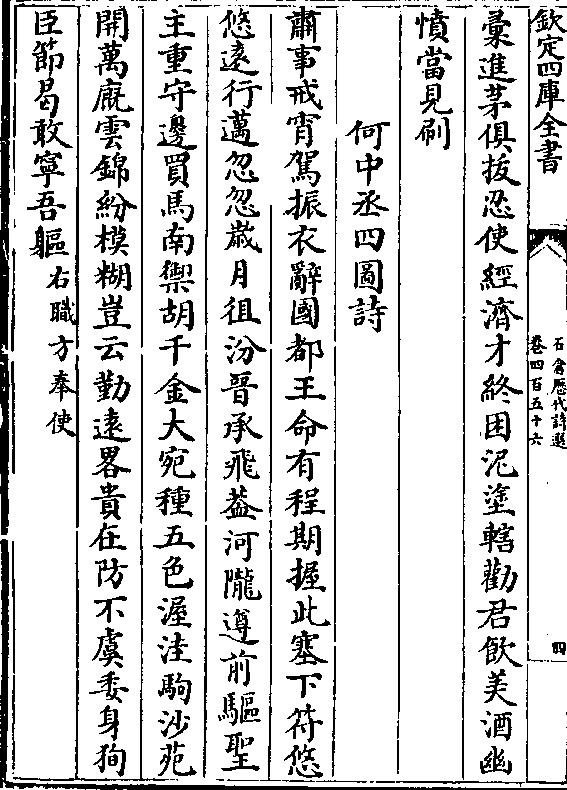 欽定四庫全書
石倉歷代詩選
卷四百五十六
四
彙進茅俱拔忍使經濟才終困泥塗轄勸君飲美酒幽
憤當見刷
何中丞四圖詩
肅事戒宵駕振衣辭國都王命有程期握此塞下符悠
悠遠行邁忽忽歲月徂汾晉承飛蓋河隴遵前驅聖
主重守邊買馬南禦胡千金大宛種五色渥洼駒沙苑
開萬廐雲錦紛模糊豈云勤遠畧貴在防不虞委身狥
臣節曷敢寧吾軀右職方奉使